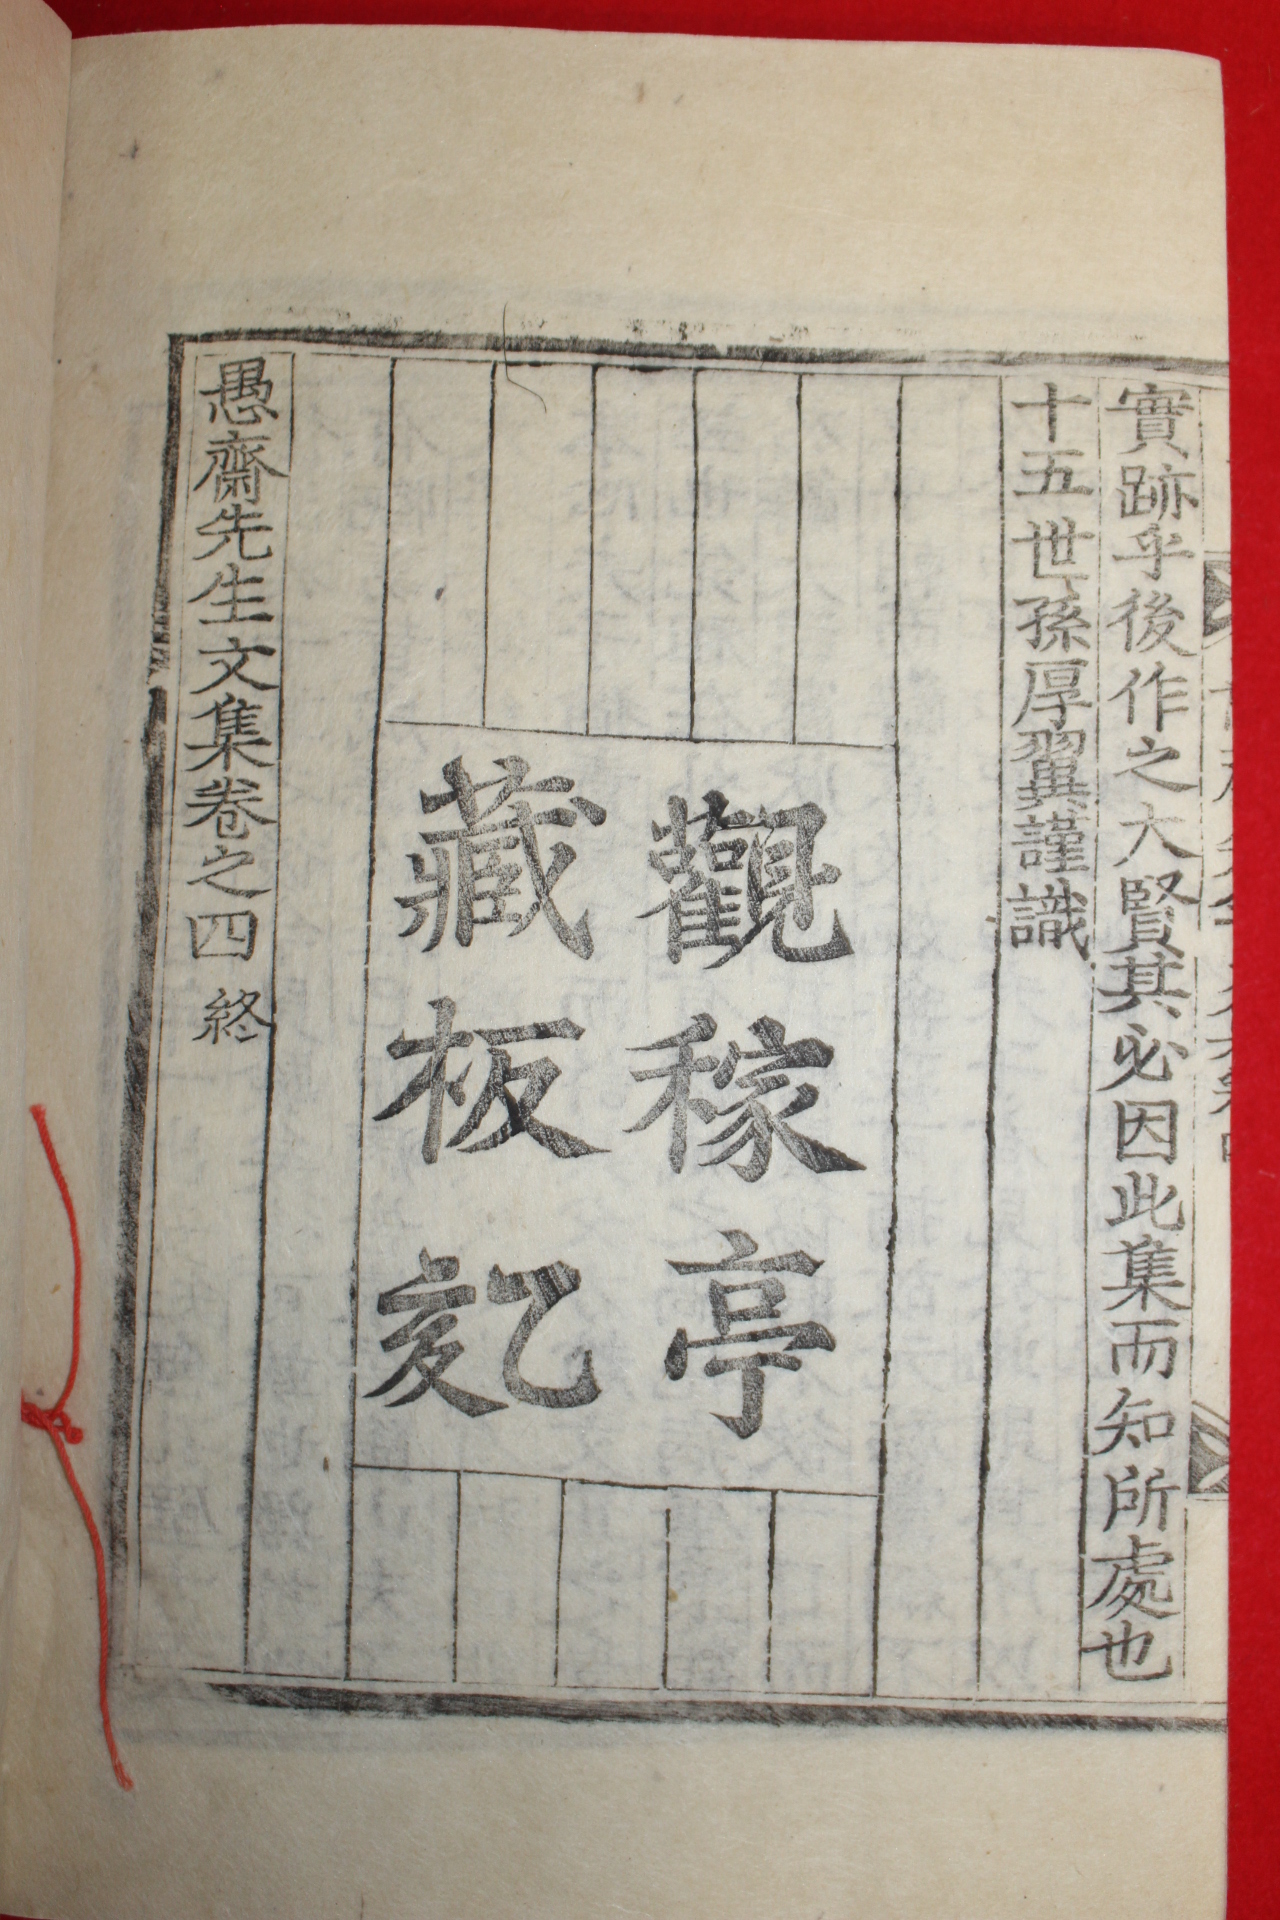 實跡乎後作之大賢其必因此集而知所處也
十五世孫厚翼謹識
觀稼亭
藏板記
愚齋先生文集卷之四 終